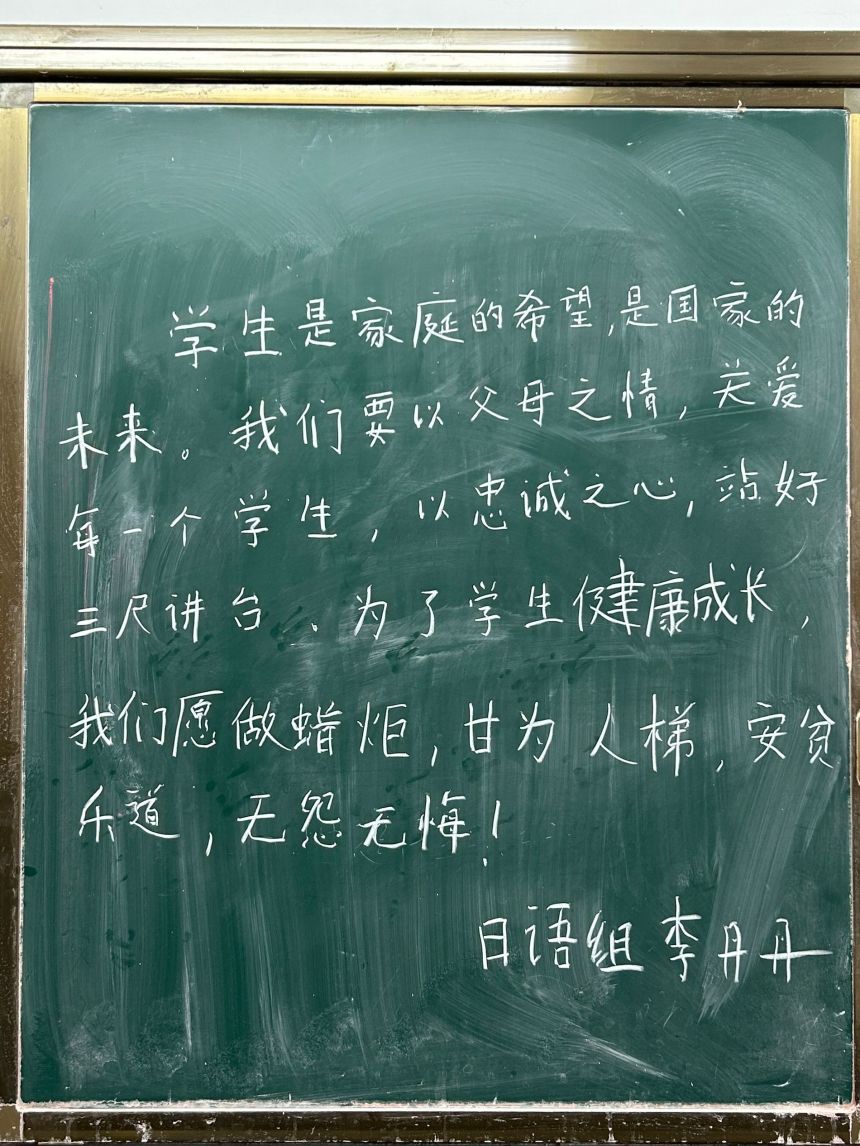 学生是家庭的希望,是国家的
未来。我们要以父母之情,关爱
每一个学生,以忠诚之心,站好
三尺讲台、为了学生健康成长,
我们愿做蜡炬,甘为人梯,安贫
乐道,无怨无悔!
日语组 李丹丹